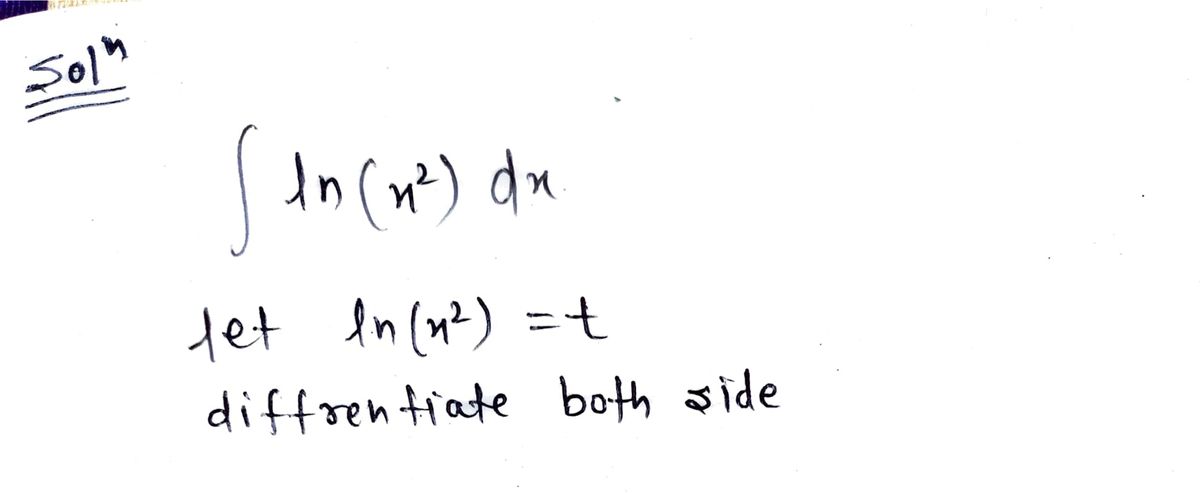 Solⁿ
∫ ln(x²) dx
let ln(x²) = t
diffrentiate both side